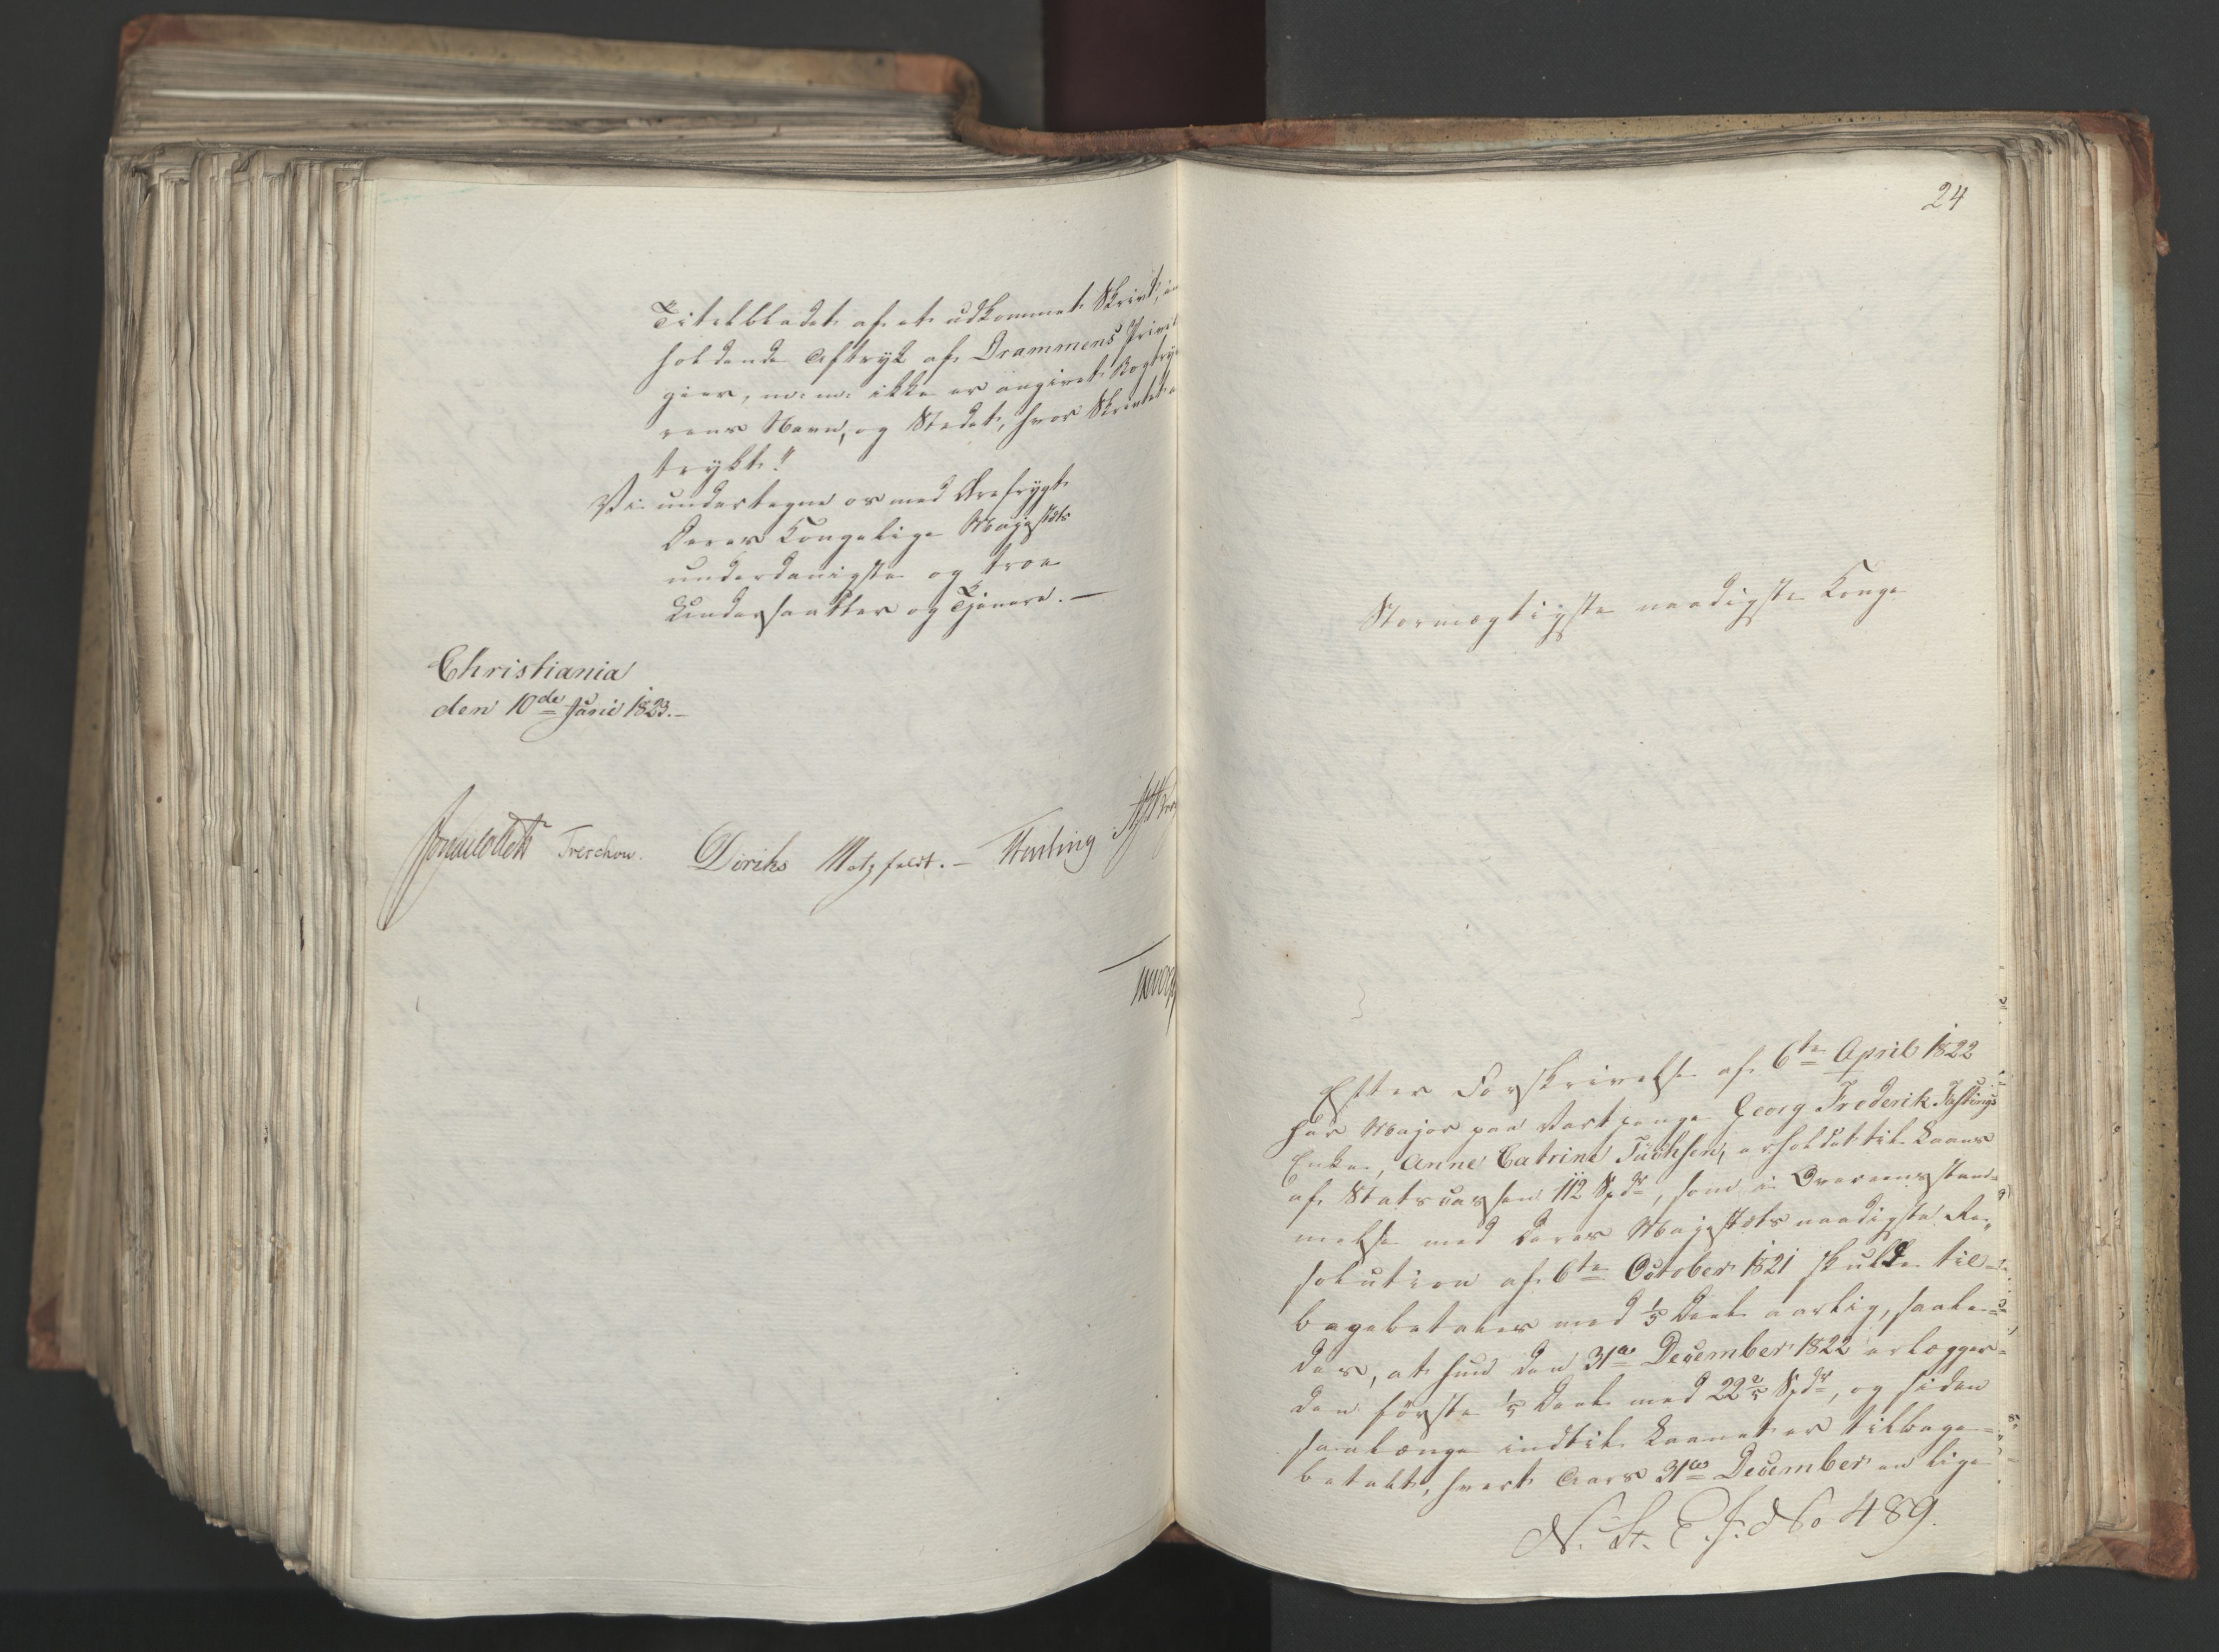 Titelbladet af et udkommet Skrivt, in
holdende Aftryk af Drammens Privil
gier, m: m: ikke er angivet Bogtry
rens Navn, og Stedet, hvor Skrivtet e
trykt."
Vi undertegne os med Ærefrygt
Deres Kongelige Majestæts
underdanigste og troe
Undersaatter og Tjenere. —
Christiania
den 10de Junii 1823. —
Jonas Collett Treschow. Diriks Motzfeldt. — Fasting
24
Stormægtigste naadigste Konge
Efter Forskrivelse af 6te April 1822
har Major paa Vartpenge Georg Frederik Fastings
Enke, Anne Catrine Tüchsen, erholdt til Laans
af Statscassen 112 Spdr, som i Overensstem-
melse med Deres Majestæts naadigste Re-
solution af 6te October 1821 skulle til-
bagebetales med 1/5 Deel aarlig, saale-
des, at hun den 31te December 1822 erlægger
den første 1/5 Deel med 22 2/5 Spdr, og siden
saalænge indtil Laanet er tilbage-
betalt, hvert Aars 31te December en lige
N. St. E. J. No 489.